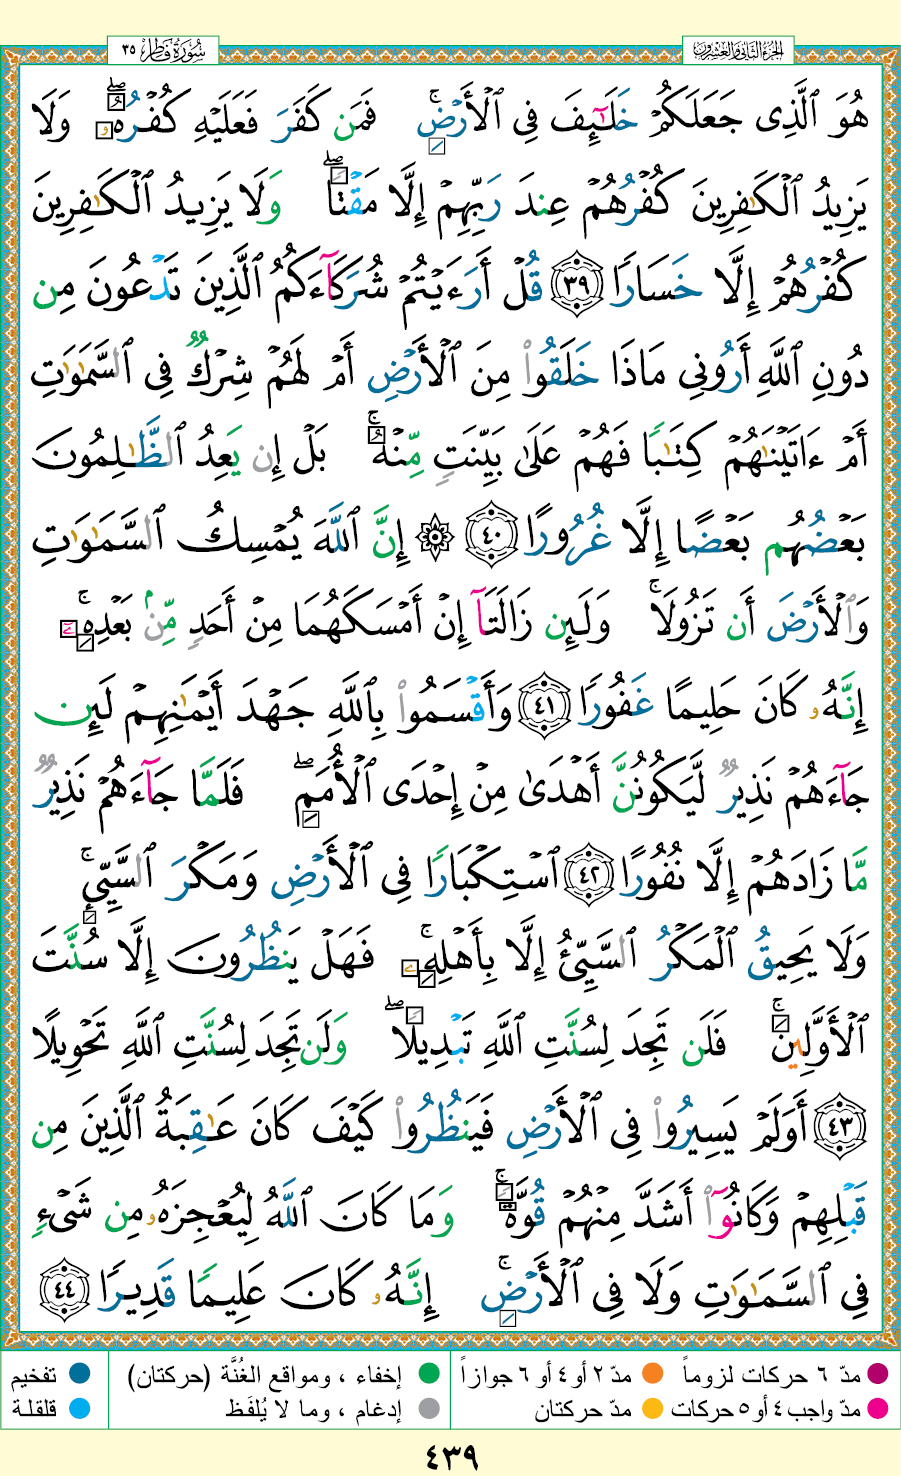 سُورَةُ فَاطِر ٣٥
الجزء الثاني والعشرون
هُوَ ٱلَّذِى جَعَلَكُمْ خَلَـٰٓئِفَ فِى ٱلْأَرْضِ ۚ فَمَن كَفَرَ فَعَلَيْهِ كُفْرُهُۥ ۖ وَلَا
يَزِيدُ ٱلْكَـٰفِرِينَ كُفْرُهُمْ عِندَ رَبِّهِمْ إِلَّا مَقْتًا ۖ وَلَا يَزِيدُ ٱلْكَـٰفِرِينَ
كُفْرُهُمْ إِلَّا خَسَارًا ٣٩ قُلْ أَرَءَيْتُمْ شُرَكَآءَكُمُ ٱلَّذِينَ تَدْعُونَ مِن
دُونِ ٱللَّهِ أَرُونِى مَاذَا خَلَقُوا۟ مِنَ ٱلْأَرْضِ أَمْ لَهُمْ شِرْكٌ فِى ٱلسَّمَـٰوَٰتِ
أَمْ ءَاتَيْنَـٰهُمْ كِتَـٰبًا فَهُمْ عَلَىٰ بَيِّنَتٍ مِّنْهُ ۚ بَلْ إِن يَعِدُ ٱلظَّـٰلِمُونَ
بَعْضُهُم بَعْضًا إِلَّا غُرُورًا ٤٠ ۞ إِنَّ ٱللَّهَ يُمْسِكُ ٱلسَّمَـٰوَٰتِ
وَٱلْأَرْضَ أَن تَزُولَا ۚ وَلَئِن زَالَتَآ إِنْ أَمْسَكَهُمَا مِنْ أَحَدٍ مِّنۢ بَعْدِهِۦٓ ۚ
إِنَّهُۥ كَانَ حَلِيمًا غَفُورًا ٤١ وَأَقْسَمُوا۟ بِٱللَّهِ جَهْدَ أَيْمَـٰنِهِمْ لَئِن
جَآءَهُمْ نَذِيرٌ لَّيَكُونُنَّ أَهْدَىٰ مِنْ إِحْدَى ٱلْأُمَمِ ۖ فَلَمَّا جَآءَهُمْ نَذِيرٌ
مَّا زَادَهُمْ إِلَّا نُفُورًا ٤٢ ٱسْتِكْبَارًا فِى ٱلْأَرْضِ وَمَكْرَ ٱلسَّيِّئِ ۚ
وَلَا يَحِيقُ ٱلْمَكْرُ ٱلسَّيِّئُ إِلَّا بِأَهْلِهِۦ ۚ فَهَلْ يَنظُرُونَ إِلَّا سُنَّتَ
ٱلْأَوَّلِينَ ۚ فَلَن تَجِدَ لِسُنَّتِ ٱللَّهِ تَبْدِيلًا ۖ وَلَن تَجِدَ لِسُنَّتِ ٱللَّهِ تَحْوِيلًا
٤٣ أَوَلَمْ يَسِيرُوا۟ فِى ٱلْأَرْضِ فَيَنظُرُوا۟ كَيْفَ كَانَ عَـٰقِبَةُ ٱلَّذِينَ مِن
قَبْلِهِمْ وَكَانُوٓا۟ أَشَدَّ مِنْهُمْ قُوَّةً ۚ وَمَا كَانَ ٱللَّهُ لِيُعْجِزَهُۥ مِن شَىْءٍ
فِى ٱلسَّمَـٰوَٰتِ وَلَا فِى ٱلْأَرْضِ ۚ إِنَّهُۥ كَانَ عَلِيمًا قَدِيرًا ٤٤
مدّ ٦ حركات لزوماً مدّ ٢ أو ٤ أو ٦ جوازاً إخفاء ، ومواقع الغُنَّة (حركتان) تفخيم
مدّ واجب ٤ أو ٥ حركات مدّ حركتان إدغام ، وما لا يُلفَظ قلقلة
٤٣٩